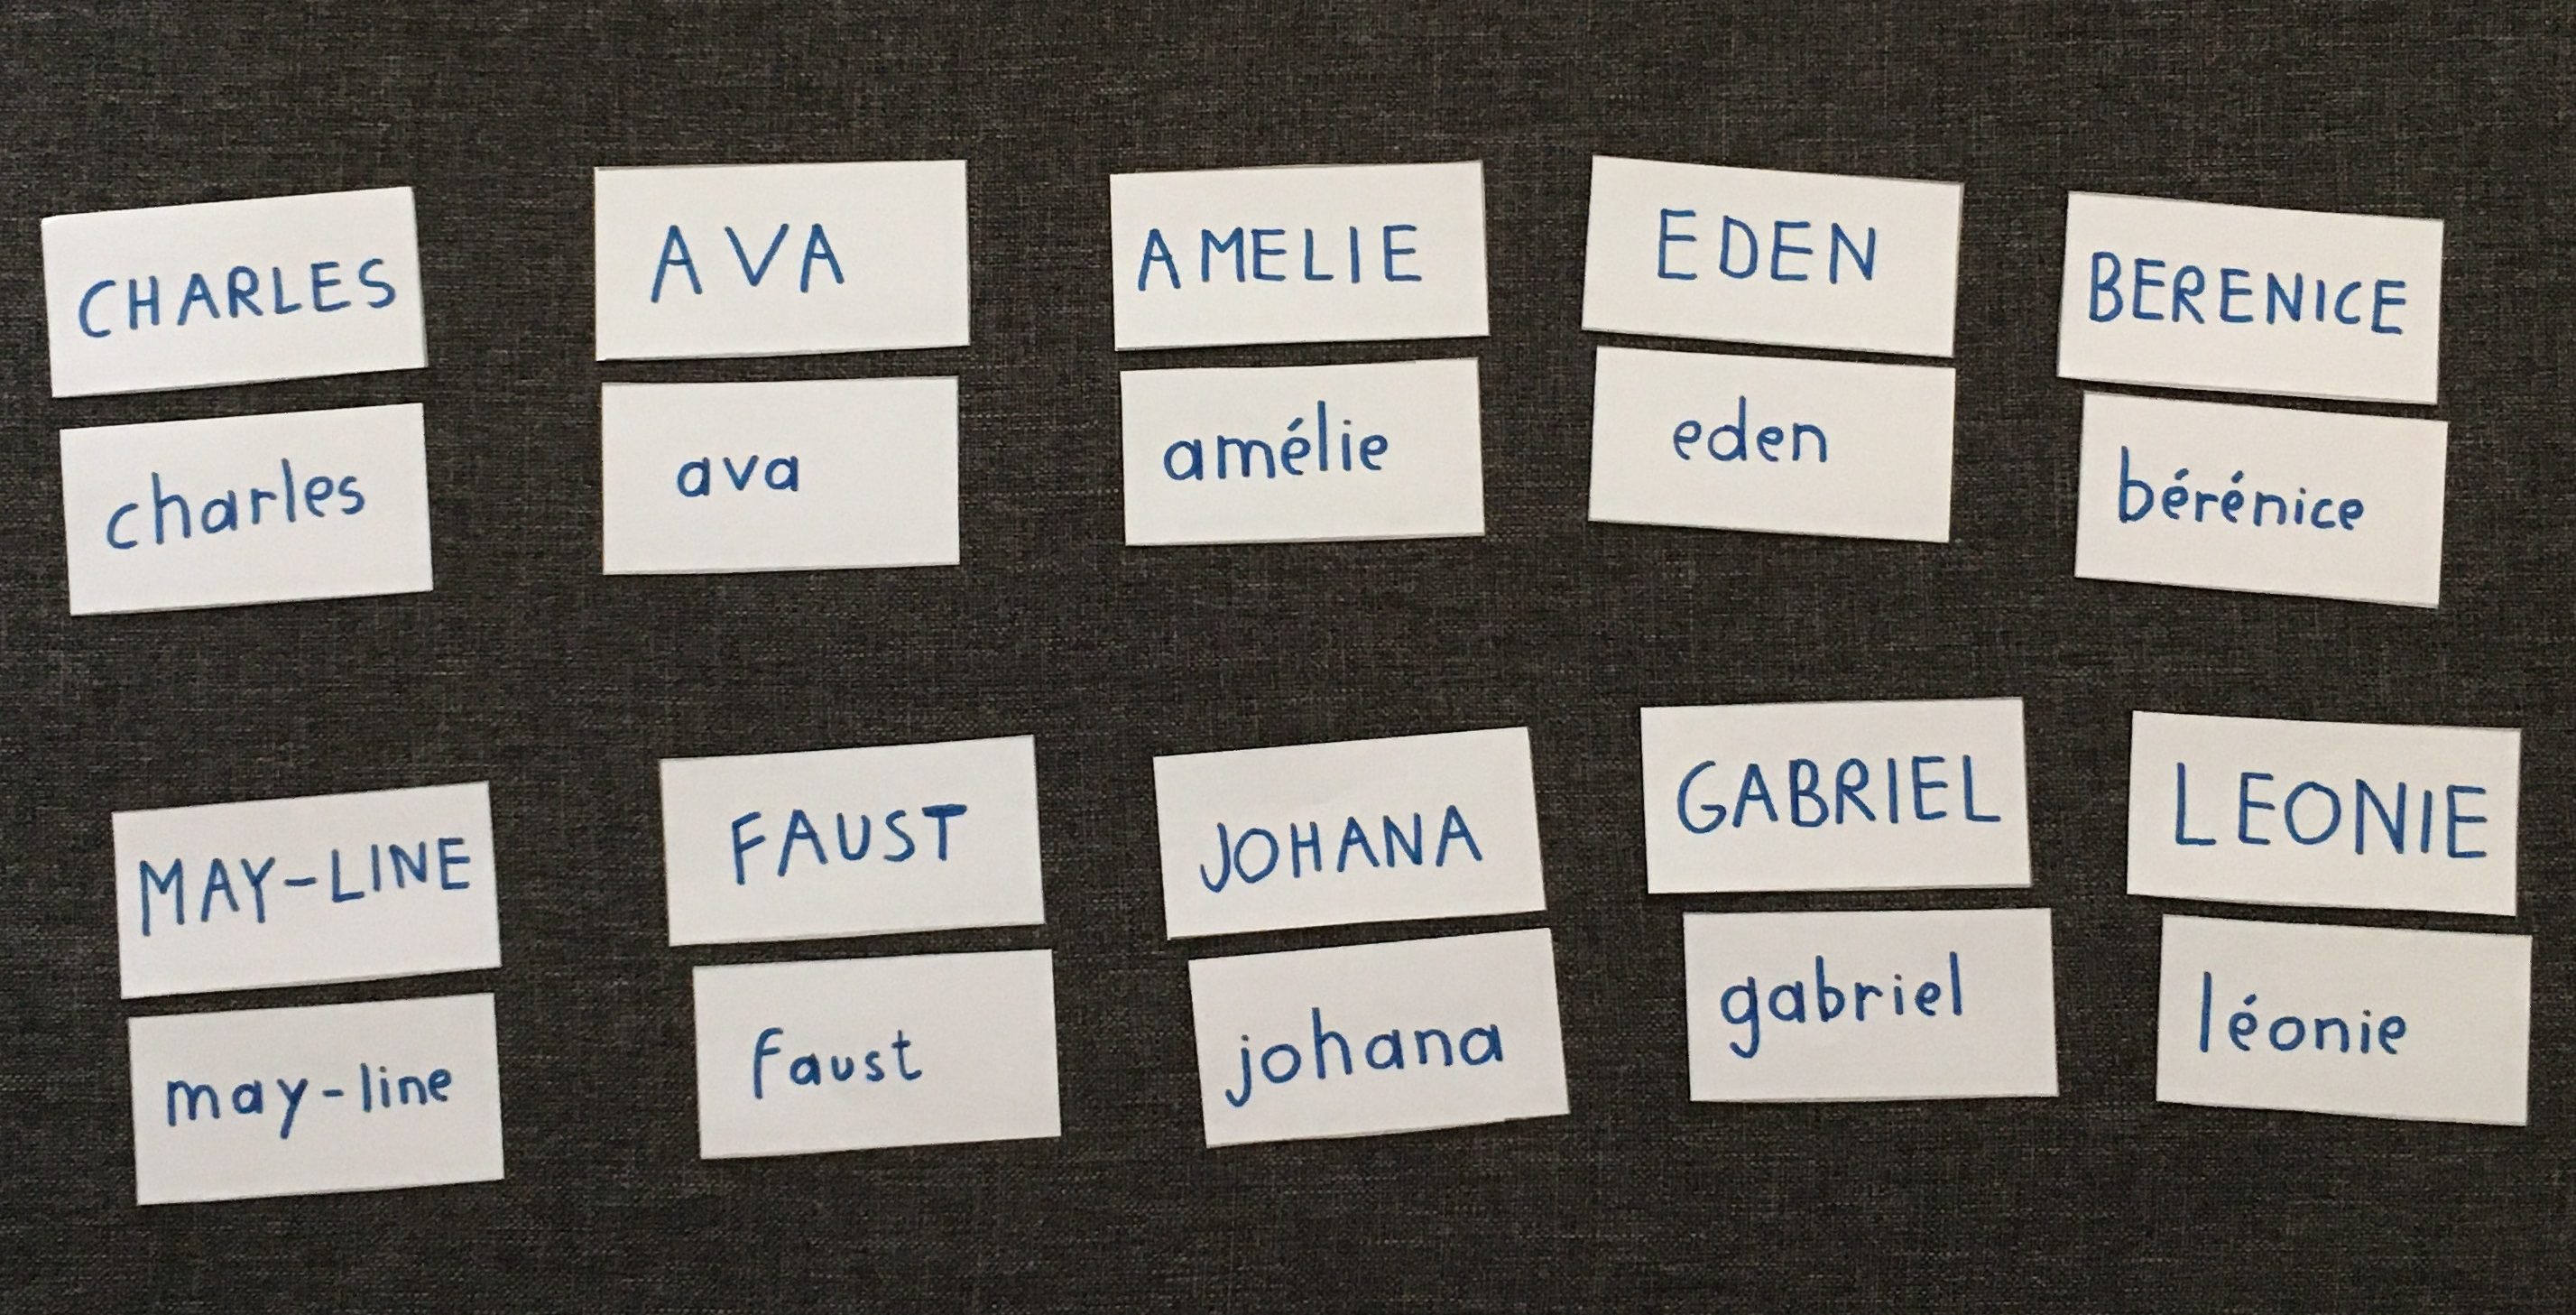 CHARLES
charles
AVA
ava
AMELIE
amélie
EDEN
eden
BERENICE
bérénice
MAY-LINE
may-line
FAUST
faust
JOHANA
johana
GABRIEL
gabriel
LEONIE
léonie